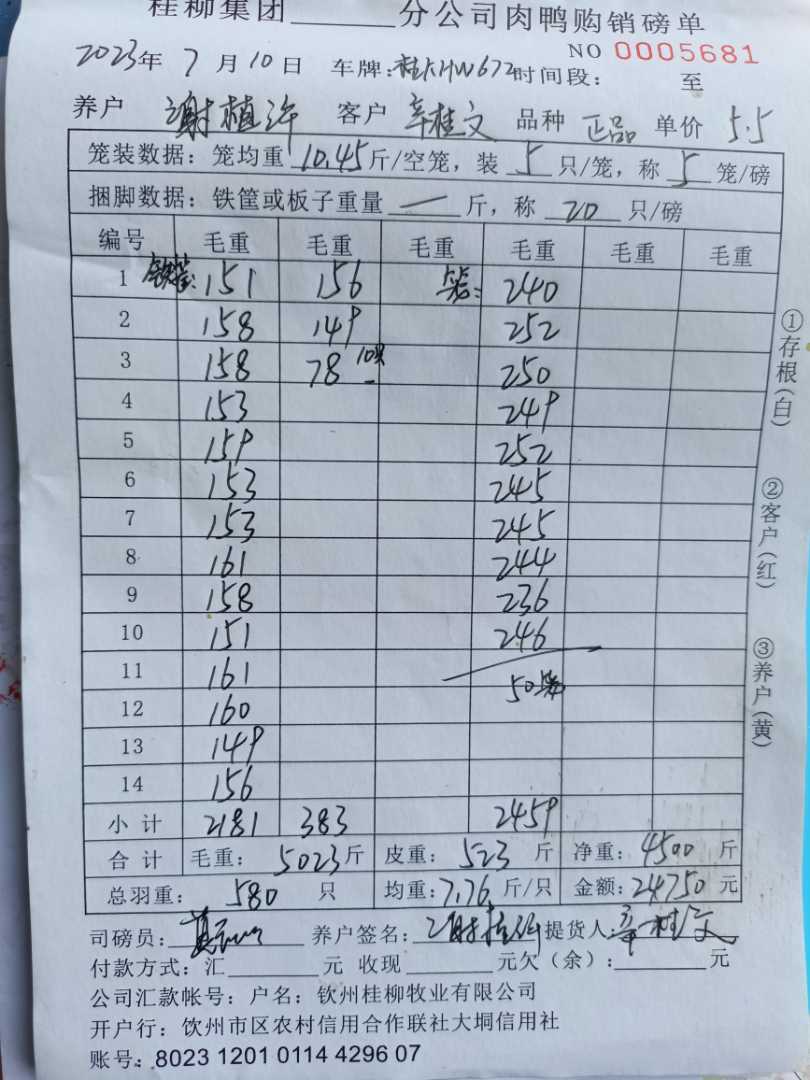 桂柳集团______分公司肉鸭购销磅单
NO 0005681
2023年 7 月 10 日 车牌:桂KHW672 时间段: 至
养户 谢植许 客户 辛桂文 品种 正品 单价 5.5
笼装数据: 笼均重 10.45 斤/空笼, 装 5 只/笼, 称 5 笼/磅
捆脚数据: 铁筐或板子重量 — 斤, 称 20 只/磅
编号 毛重 毛重 毛重 毛重 毛重 毛重
1 铁筐: 151 156 笼: 240
2 158 149 252
3 158 78 10只 250
4 153 249
5 159 252
6 153 245
7 153 245
8 161 244
9 158 236
10 151 246
11 161 50笼
12 160
13 149
14 156
小计 2181 383 2459
合计 毛重: 5023 斤 皮重: 523 斤 净重: 4500 斤
总羽重: 580 只 均重: 7.76 斤/只 金额: 24750 元
司磅员: 养户签名: 提货人:
付款方式: 汇______元 收现______元欠(余):______元
公司汇款帐号: 户名: 钦州桂柳牧业有限公司
开户行: 钦州市区农村信用合作联社大垌信用社
账号: 8023 1201 0114 4296 07
①存根(白)
②客户(红)
③养户(黄)